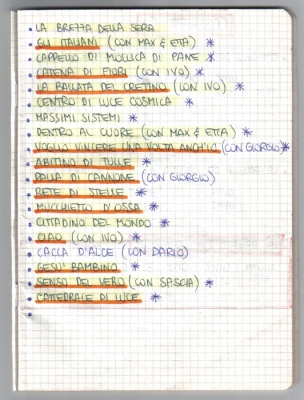 LA BREZZA DELLA SERA
GLI ITALIANI (CON MAX & ETTA) *
CAPPELLO DI MOLLICA DI PANE *
CATENA DI FIORI (CON IVO) *
LA BALLATA DEL CRETINO (CON IVO) *
CENTRO DI LUCE COSMICA *
MASSIMI SISTEMI *
DENTRO AL CUORE (CON MAX & ETTA) *
VOGLIO VINCERE UNA VOLTA ANCH'IO (CON GIORGIO) *
ABITINO DI TULLE *
PALLA DI CANNONE (CON GIORGIO)
RETE DI STELLE *
MUCCHIETTO D'OSSA *
CITTADINO DEL MONDO *
CIAO (CON IVO) *
CACCA D'ALCE (CON DARIO)
GESU' BAMBINO *
SENSO DEL VERO (CON SASCIA) *
CATTEDRALE DI LUCE *